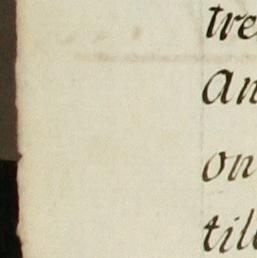 tre
An
on
tile